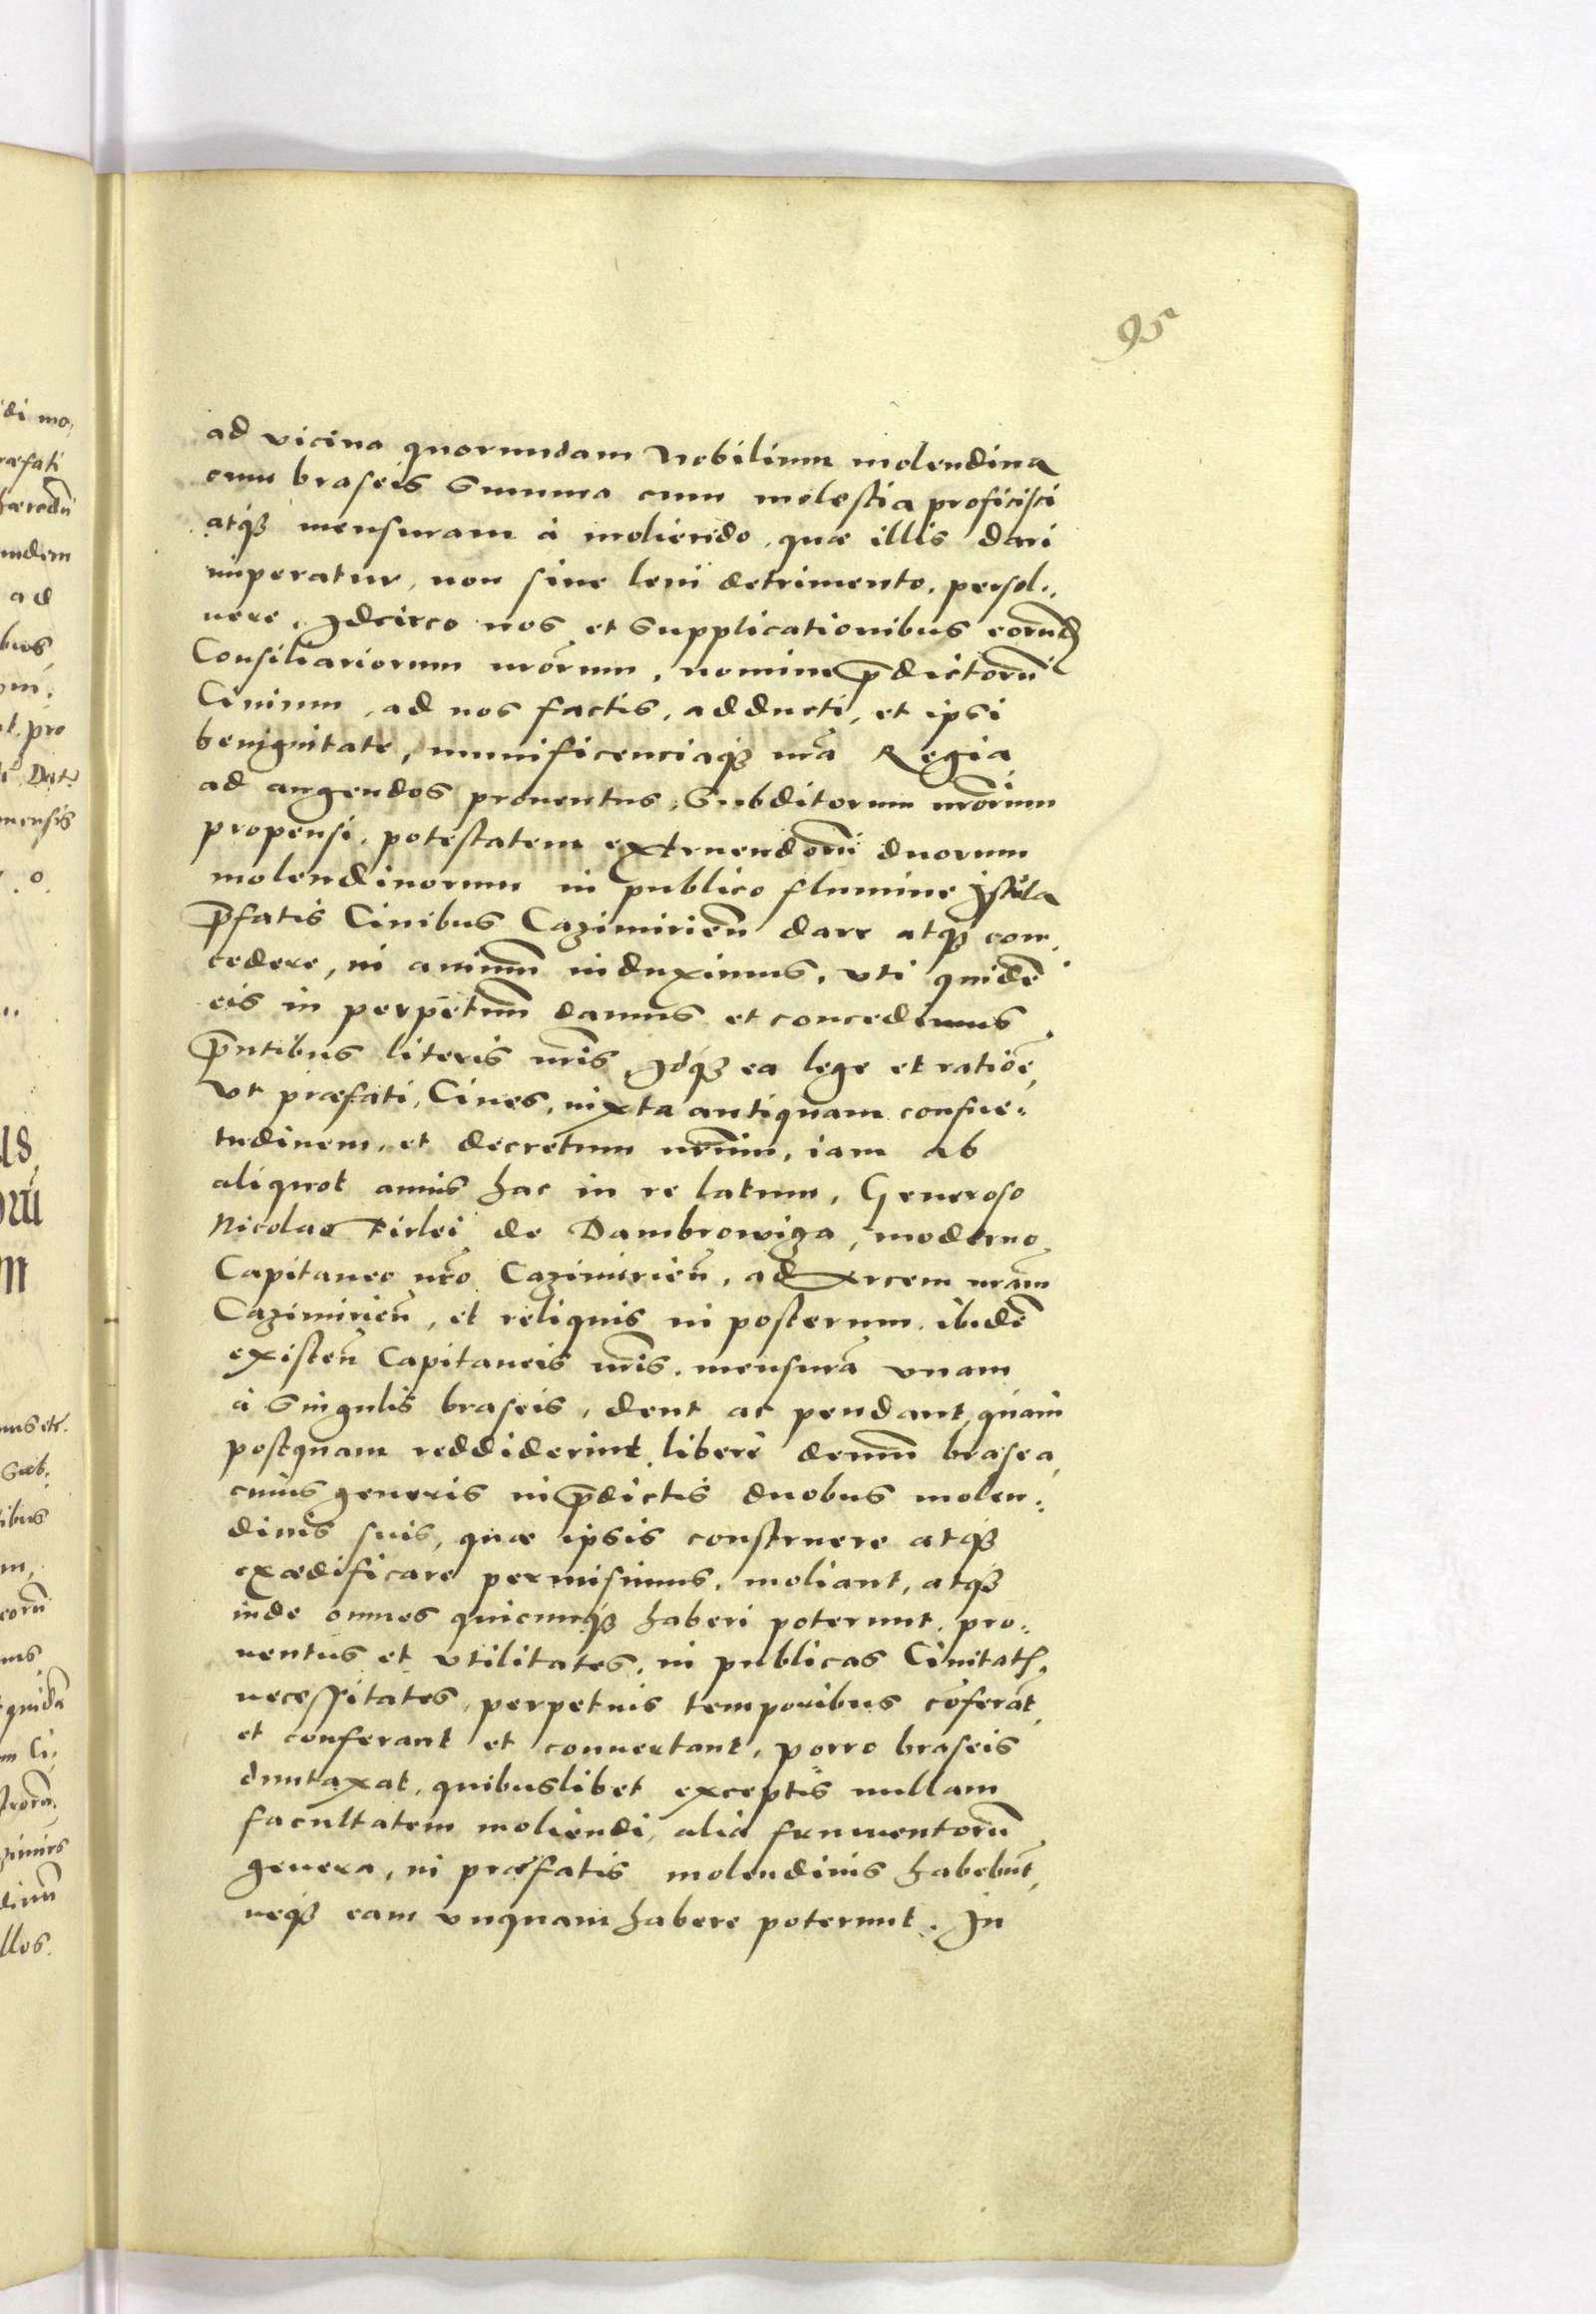 95
ad vicina quorundam Nobilium molendina
cum braseis Summa cum molestia proficisci
atqꝫ mensuram à moliendo, quæ illis dari
imperatur, non sine leui detrimento, persol„
uere, Idcirco nos et Supplicationibus eorund̄
Consiliariorum nr̃orum, nomine p̄dictorū
Ciuium, ad nos factis, adducti, et ipsi
benignitate, munificenciaqꝫ nr̃a Regia
ad augendos prouentus, Subditorum nr̃orum
propensi, potestatem extruendorū duorum
molendinorum in publico flumine Istula
p̄fatis Ciuibus Cazimirien̄ dare atqꝫ con„
cedere, in animū induximus, vti quidē
eis in perpetuū damus et concedimus
p̄ntibus literis nr̃is, Idqꝫ ea lege et ratiōe,
vt præfati, Ciues, iuxta antiquam consue„
tudinem, et decretum nr̃um, iam ab
aliquot annis hac in re latum, Generoso
Nicolao Firlei de Dambrowiza, moderno
Capitaneo nr̃o Cazimirien̄, ad Arcem nr̃am
Cazimirien̄, et reliquis in posterum ibidē
existen̄ Capitaneis nr̃is, mensurā vnam
à Singulis braseis, dent ac pendant, quam
postquam reddiderint, liberè demū brasea,
cuius generis in p̄dictis duobus molen„
dinis suis, quæ ipsis construere atqꝫ
exædificare permisimus, moliant, atqꝫ
inde omnes quicunqꝫ haberi poterunt, pro„
uentus et vtilitates, in publicas Ciuitatꝭ
necessitates, perpetuis temporibus cōferāt,
et conferant et conuertant, porro braseis
duntaxat, quibuslibet exceptis nullam
facultatem moliendi, alia frumentorū
genera, in præfatis molendinis habebūt,
neqꝫ eam vnquam habere poterunt. In